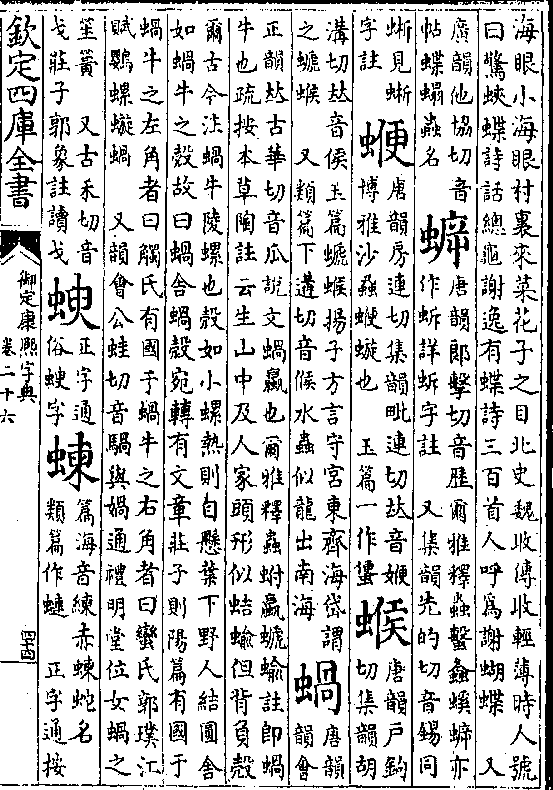 海眼小海眼村裏來菜花子之目北史魏收傳收輕薄時人號
曰驚蛺蝶詩話總龜謝逸有蝶詩三百首人呼為謝蝴蝶 又
廣韻他協切音
帖蝶蟲名
唐韻郎擊切音歷爾雅釋蟲蟿螽螇亦
作蚸詳蚸字註 又集韻先的切音錫同
蜥見蜥
字註
𧍲
唐韻房連切集韻毗連切𠀤音㛹
博雅沙蝨𧍲䗠也 玉篇一作
䗔
唐韻戶鉤
切集韻胡
溝切𠀤音侯玉篇螔䗔揚子方言守宮東齊海岱謂
之螔䗔 又類篇下遘切音候水蟲似龍出南海
蝸
唐韻
韻會
正韻𠀤古華切音瓜說文蝸蠃也爾雅釋蟲蚹蠃螔蝓註即蝸
牛也疏按本草陶註云生山中及人家頭形似蛞蝓但背負殼
爾古今注蝸牛陵螺也殼如小螺熱則自懸葉下野人結圓舍
如蝸牛之殼故曰蝸舍蝸殼宛轉有文章莊子則陽篇有國于
蝸牛之左角者曰觸氏有國于蝸牛之右角者曰蠻氏郭璞江
賦鸚螺蜁蝸 又韻會公蛙切音騧與媧通禮明堂位女蝸之
笙簧 又古禾切音
戈莊子郭象註讀戈
蝡
正字通
俗蝡字
蝀
篇海音練赤蝀蛇名
類篇作 正字通按
欽定四庫全書
御定康熙字典
卷二十六